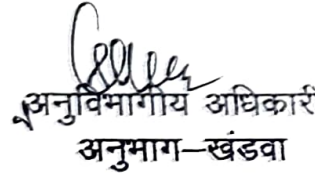 अनुविभागीय अधिकारी
अनुभाग–खंडवा